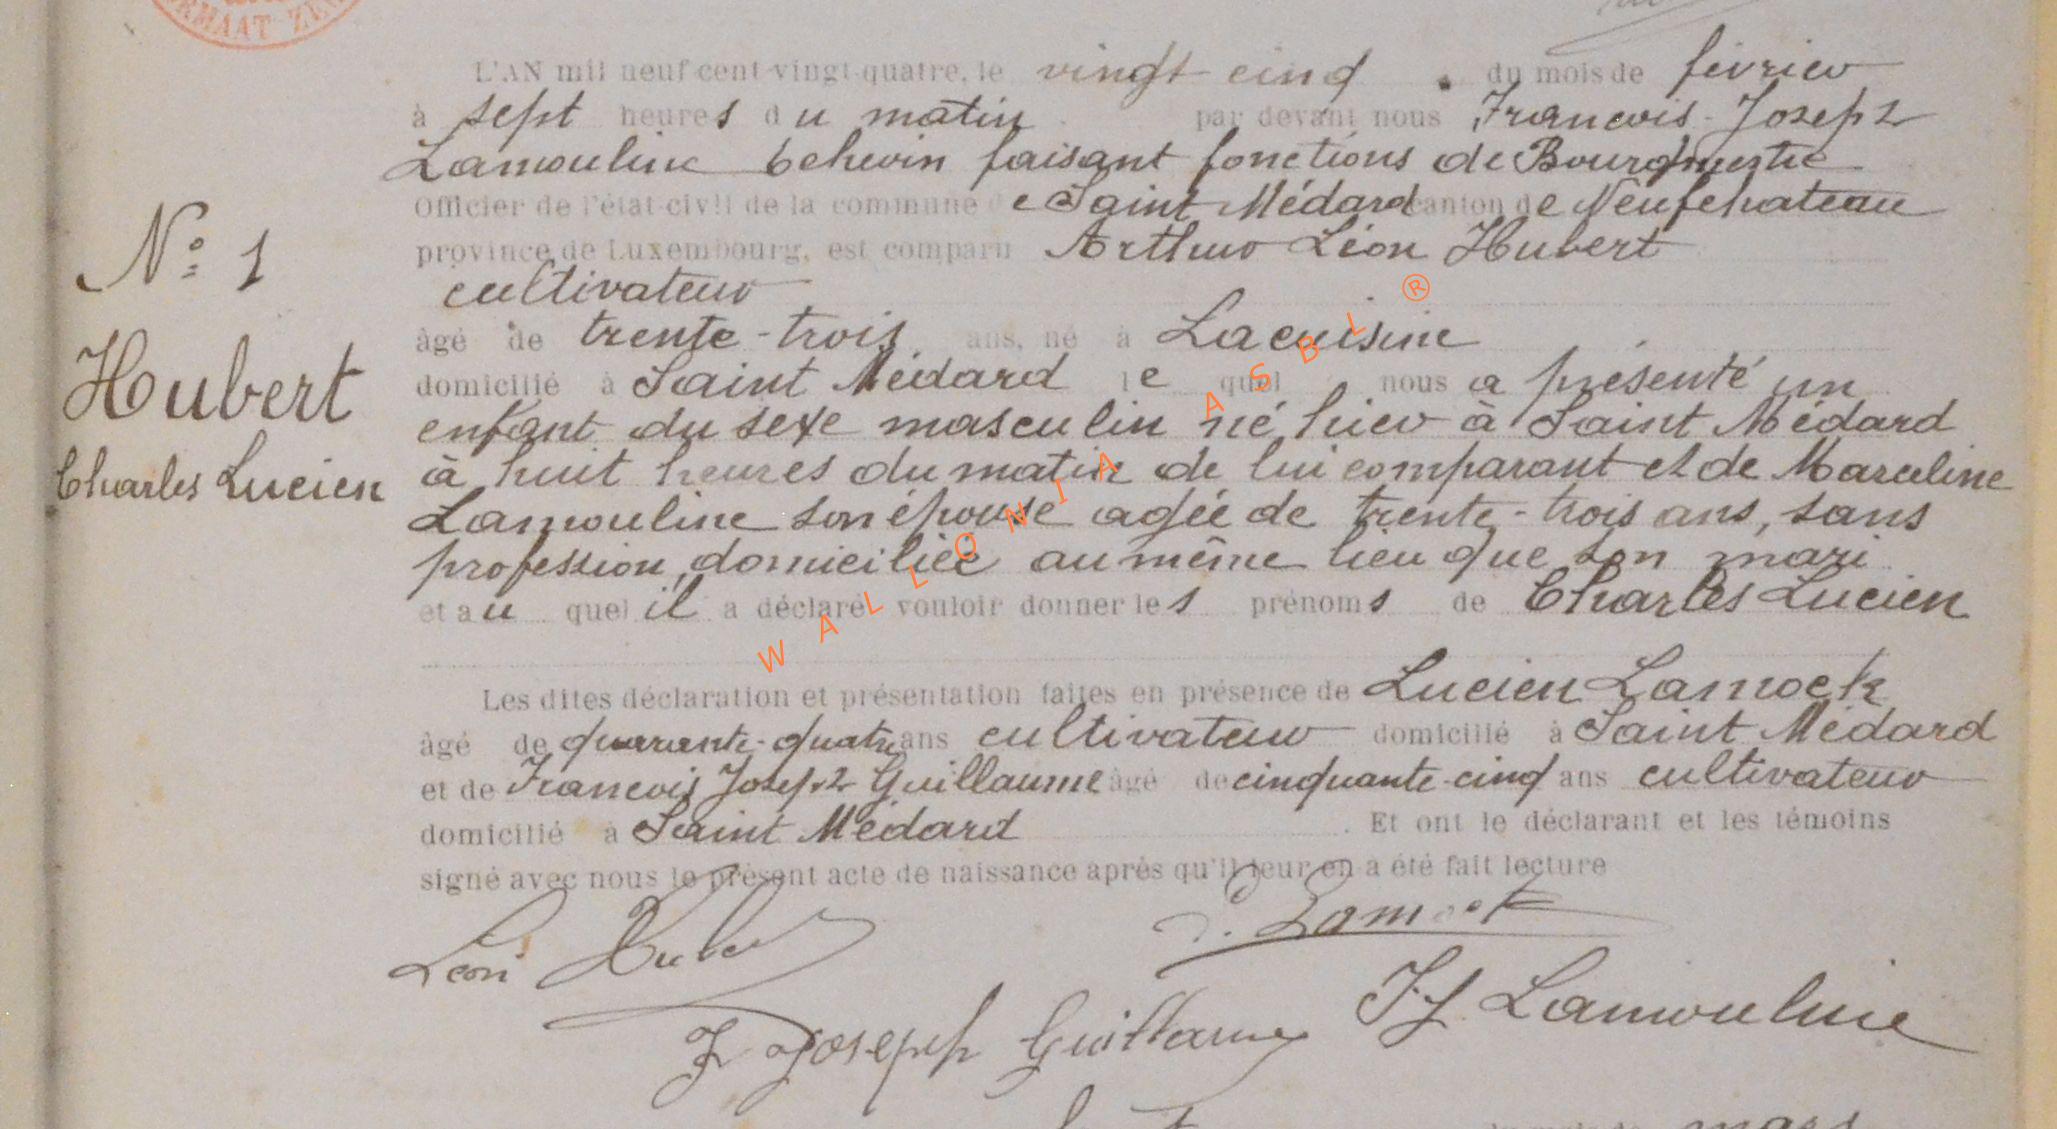 L'AN mil neuf cent vingt quatre, le vingt cinq du mois de février
à sept heures du matin par devant nous François Joseph
Lamouline Echevin faisant fonctions de Bourgmestre
Officier de l'état-civil de la commune de Saint Médard canton de Neufchateau
province de Luxembourg, est comparu Arthur Léon Hubert
cultivateur
âgé de trente-trois ans, né à Lacuisine
domicilié à Saint Médard lequel nous a présenté un
enfant du sexe masculin né hier à Saint Médard
à huit heures du matin de lui comparant et de Marceline
Lamouline son épouse agée de trente-trois ans, sans
profession, domiciliée au même lieu que son mari
et auquel il a déclaré vouloir donner les prénoms de Charles Lucien
Nº 1
Hubert
Charles Lucien
Les dites déclaration et présentation faites en présence de Lucien Lamock
âgé de quarante-quatre ans cultivateur domicilié à Saint Médard
et de François Joseph Guillaume âgé de cinquante-cinq ans cultivateur
domicilié à Saint Médard. Et ont le déclarant et les témoins
signé avec nous le présent acte de naissance après qu'il leur en a été fait lecture
Léon Hubert
Lamock
F Joseph Guillaume
FJ Lamouline
mars
WALLONIA ASBL ®